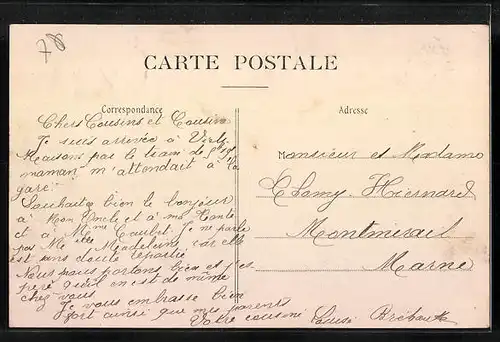 78
CARTE POSTALE
Correspondance
Adresse
Chers Cousins et Cousine
Je suis arrivée à
Maisons par le train de
maman m'attendait à la
gare.
Souhaitez bien le bonjour
à Mon Oncle et à ma Tante
et à Mme Je ne parle
pas Melle Madeleine, car elle
est sans doute repartie
Nous nous portons bien et j'es
père qu'il en est de même
chez vous
Je vous embrasse bien
fort ainsi que mes parents
Votre cousine
Monsieur et Madame
Hiernard
Montmirail
Marne